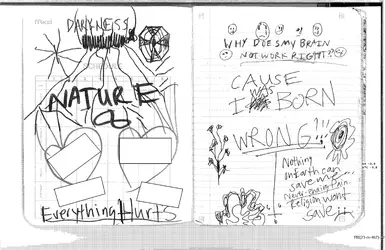 DARKNESS
NATURE
Everything Hurts
WHY DOES MY BRAIN
NOT WORK RIGHT??
CAUSE
I WAS BORN
WRONG!!!
Nothing
on Earth can
save me...
Never-ending Pain.
Religion won't
save